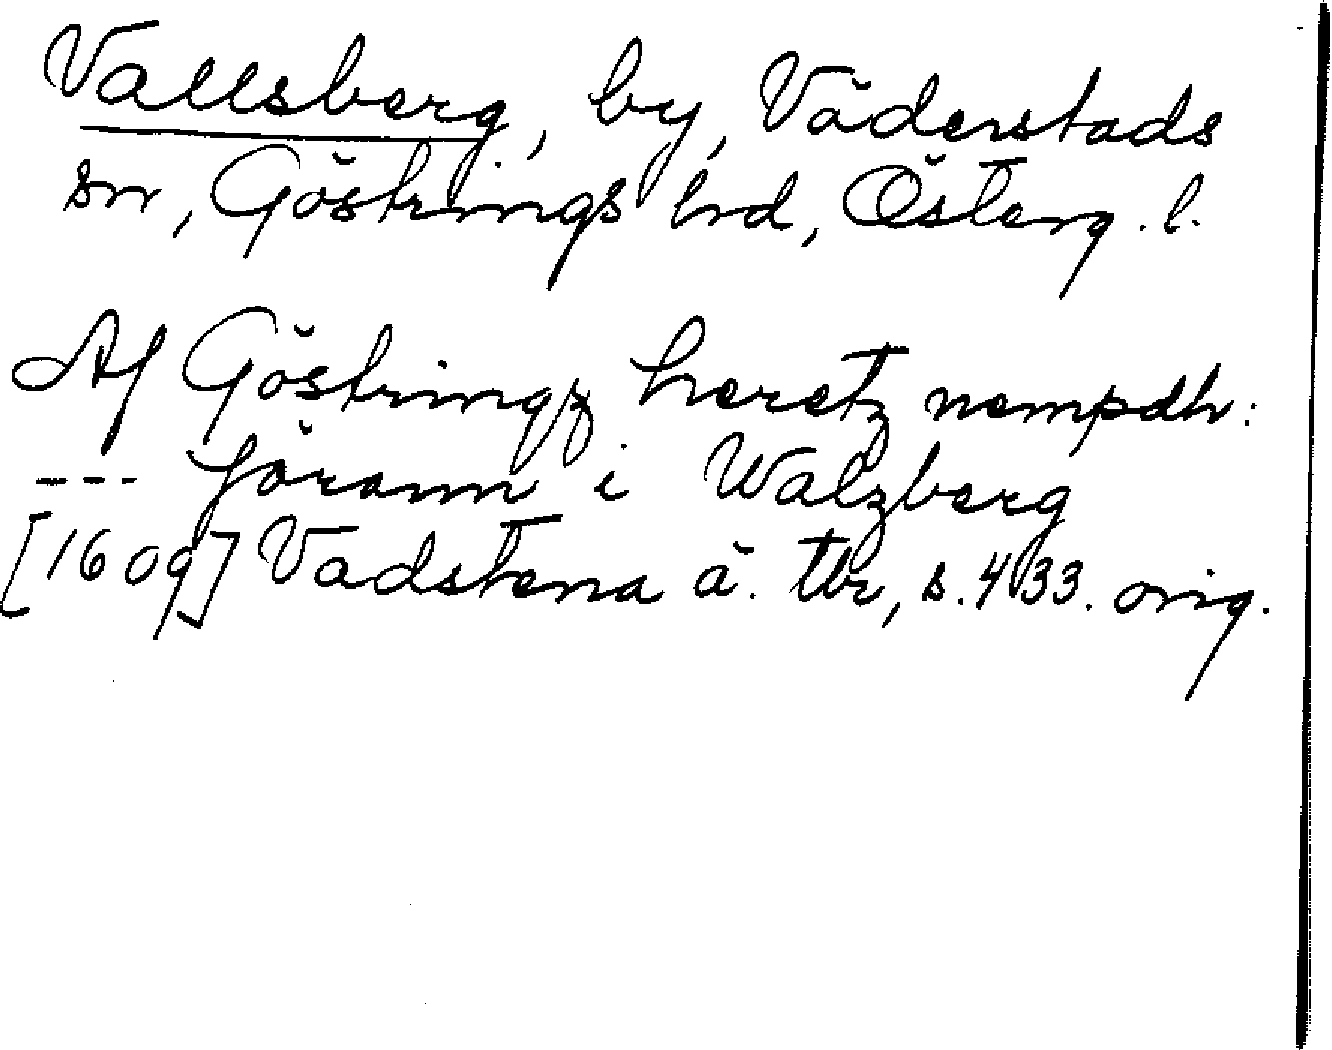 Vallsberg, by, Väderstads
sn, Göstrings hrd, Österg. l.
Af Göstringz heretz nempdh:
--- Jörann i Walzberg
[1609] Vadstena ä. tb, s. 433. orig.